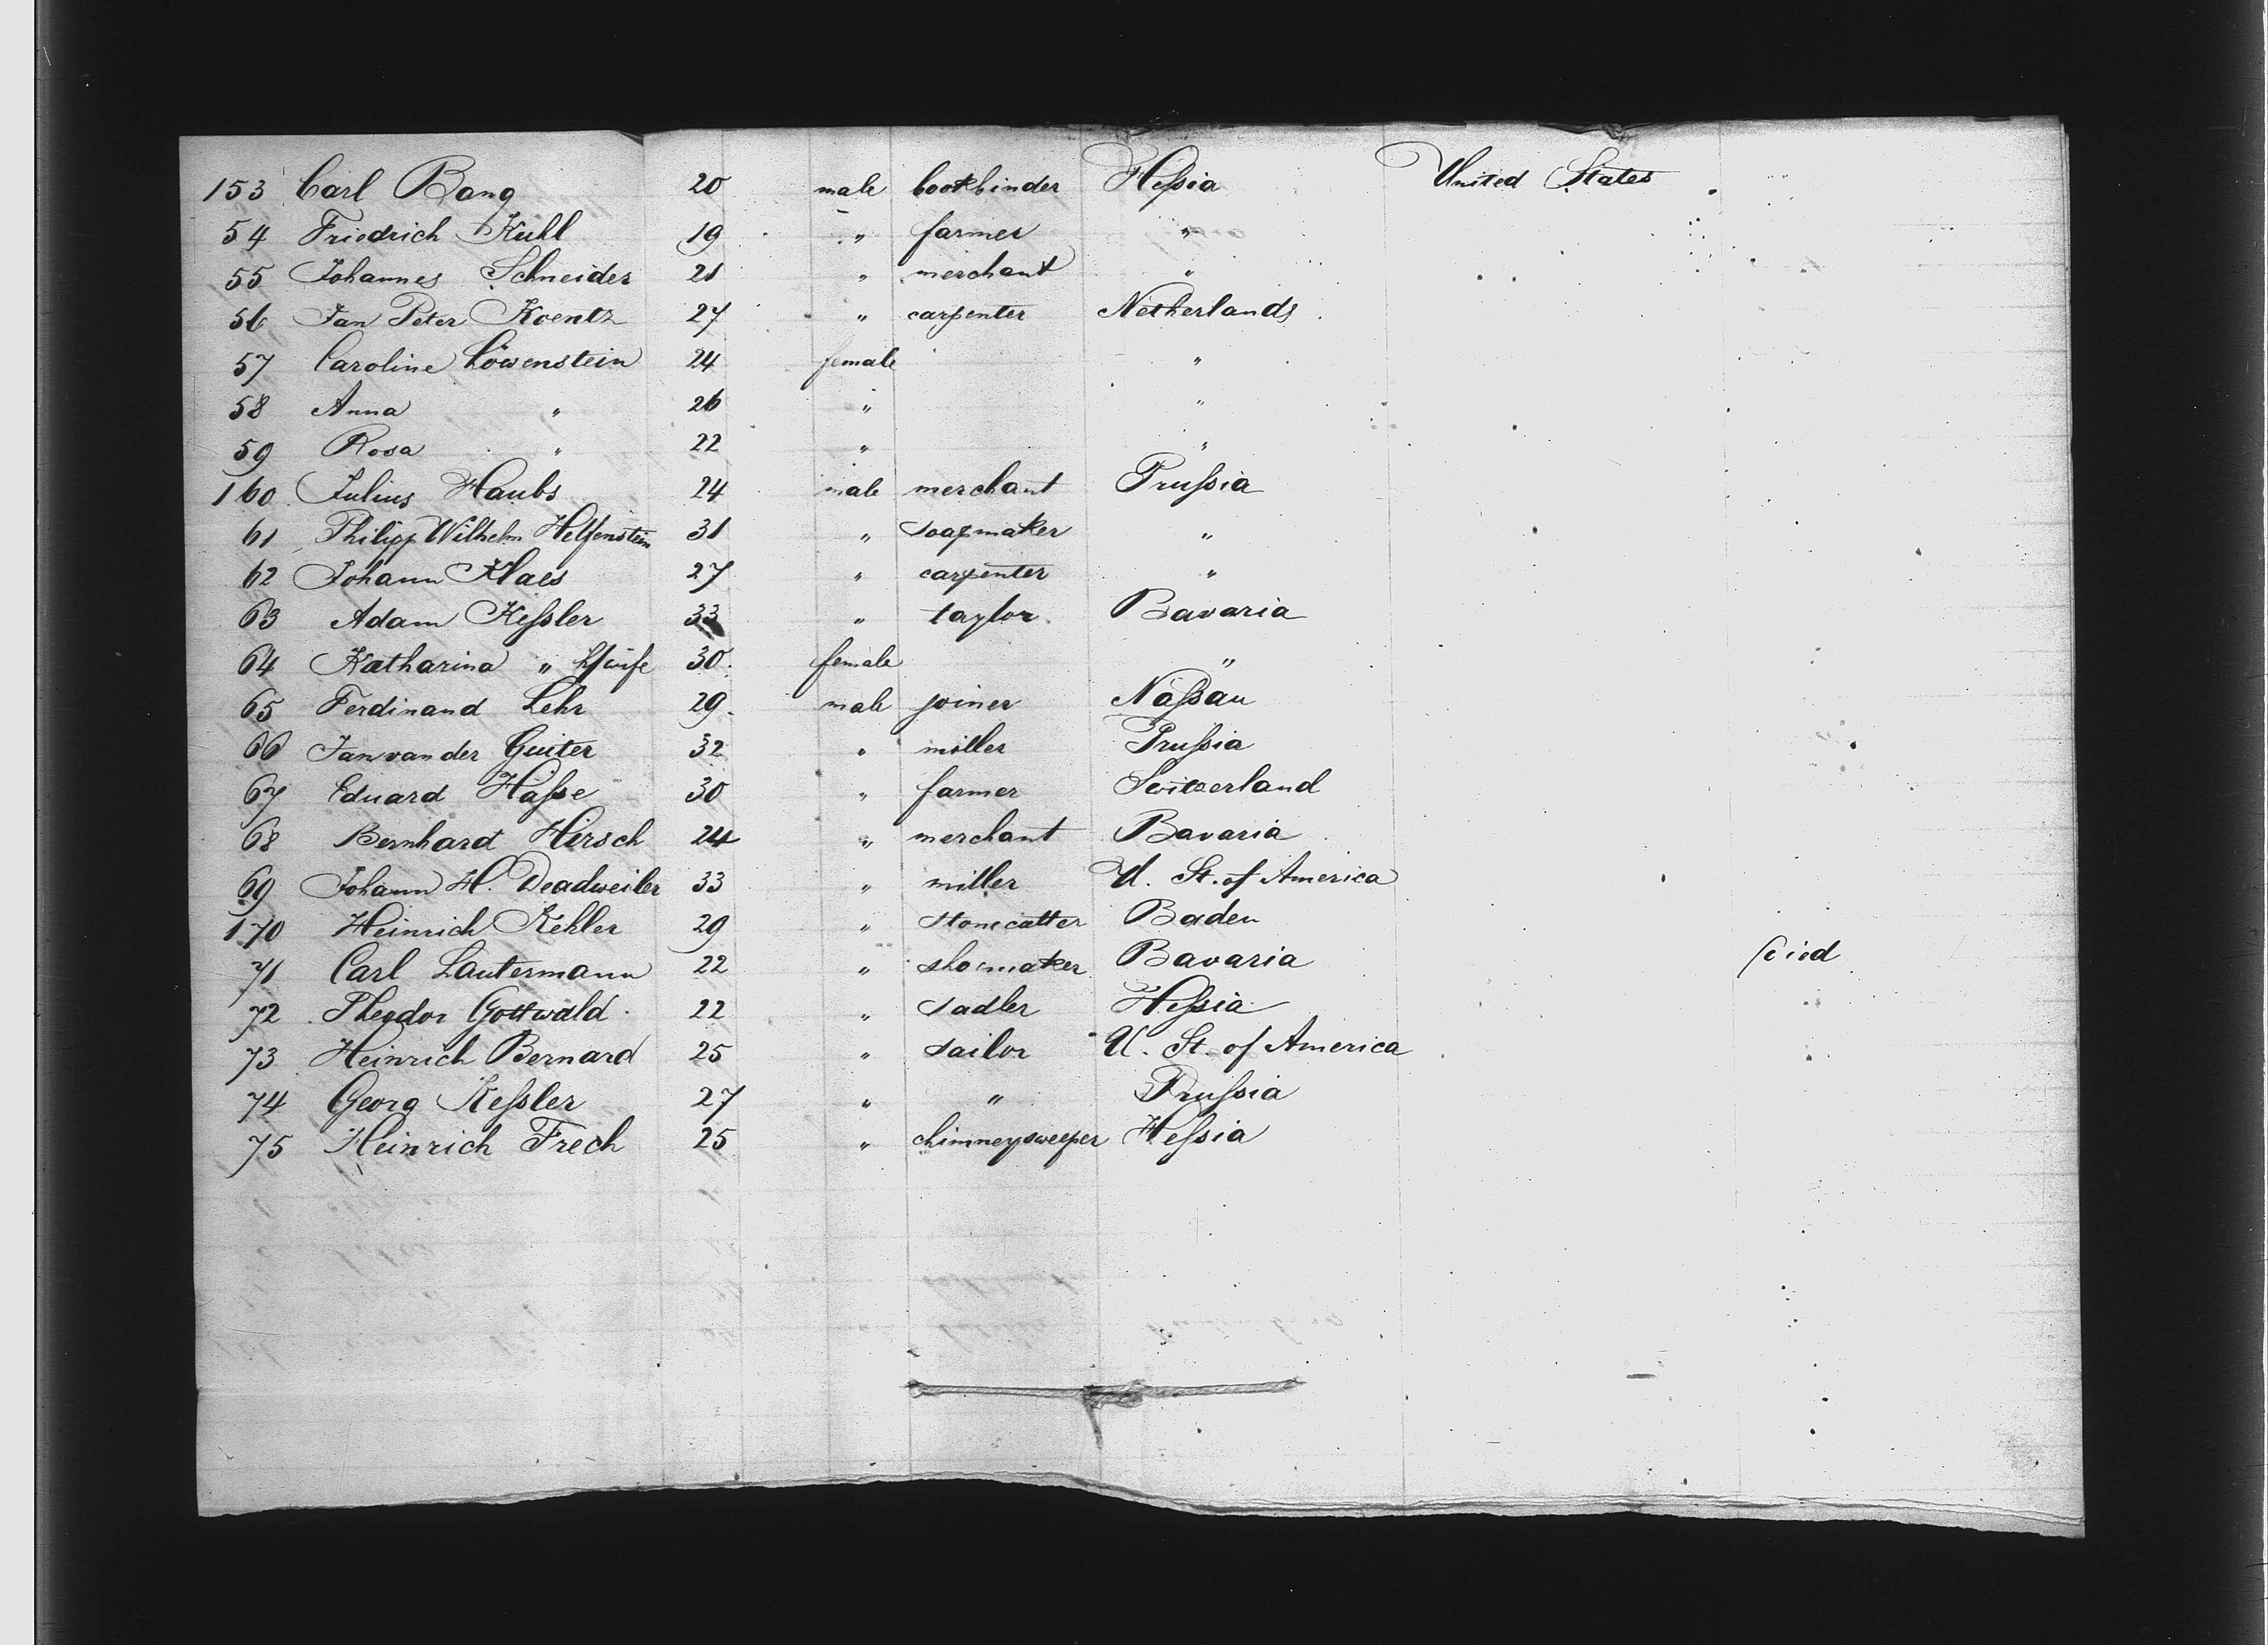 153 Carl Bang 20 male bookbinder Heſsia United States
54 Friedrich Kuhl 19 " farmer "
55 Johannes Schneider 21 " merchant "
56 Jan Peter Koentz 27 " carpenter Netherlands
57 Caroline Löwenstein 24 female "
58 Anna " 26 " "
59 Rosa " 22 " "
160 Julius Haubs 24 male merchant Pruſsia
61 Philipp Wilhelm Helfenstein 31 " soapmaker "
62 Johann Klaes 27 " carpenter "
63 Adam Keſsler 33 " taylor Bavaria
64 Katharina " wife 30 female "
65 Ferdinand Lehr 29 male joiner Naſsau
66 Jan van der Guiter 32 " miller Pruſsia
67 Eduard Haſse 30 " farmer Switzerland
68 Bernhard Hirsch 24 " merchant Bavaria
69 Johann H. Deadweiler 33 " miller U. St. of America
170 Heinrich Kehler 29 " stonecutter Baden
71 Carl Lautermann 22 " shoemaker Bavaria died
72 Theodor Gottwald 22 " sadler Heſsia
73 Heinrich Bernard 25 " sailor U. St. of America
74 Georg Keſsler 27 " " Pruſsia
75 Heinrich Frech 25 " chimneysweeper Heſsia